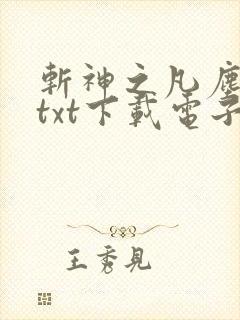 斬神之凡塵
txt下載電子
王秀見